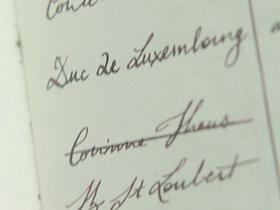 Duc de Luxembourg
Corinne Theus
St Loubert